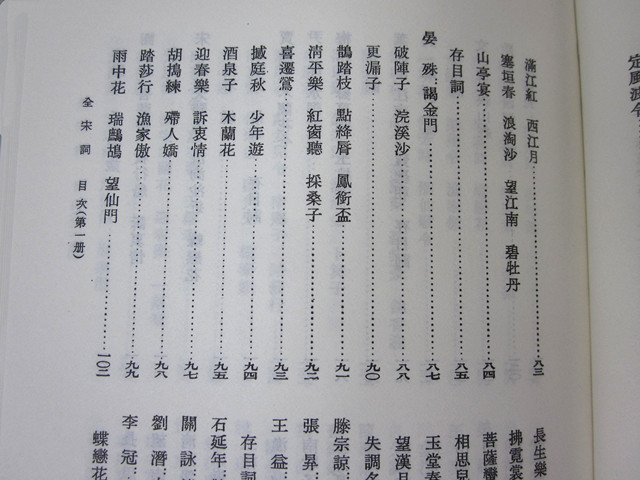 定風波令
滿江紅 西江月
塞垣春 浪淘沙 望江南 碧牡丹……八三
山亭宴……八四
存目詞……八五
晏 殊：謁金門……八七
破陣子 浣溪沙……八八
更漏子……九〇
鵲踏枝 點絳脣 鳳銜盃……九一
清平樂 紅窗聽 採桑子……九二
喜遷鶯……九三
撼庭秋 少年遊……九四
酒泉子 木蘭花……九五
迎春樂 訴衷情……九七
胡搗練 殢人嬌……九八
踏莎行 漁家傲……九九
雨中花 瑞鷓鴣 望仙門……一〇二
全宋詞 目次（第一册）
長生樂
拂霓裳
菩薩蠻
相思兒
玉堂春
望漢月
失調名
滕宗諒：
張 昇：
王 益：
存目詞
石延年：
關 詠：
劉 潛：
李 冠：
蝶戀花